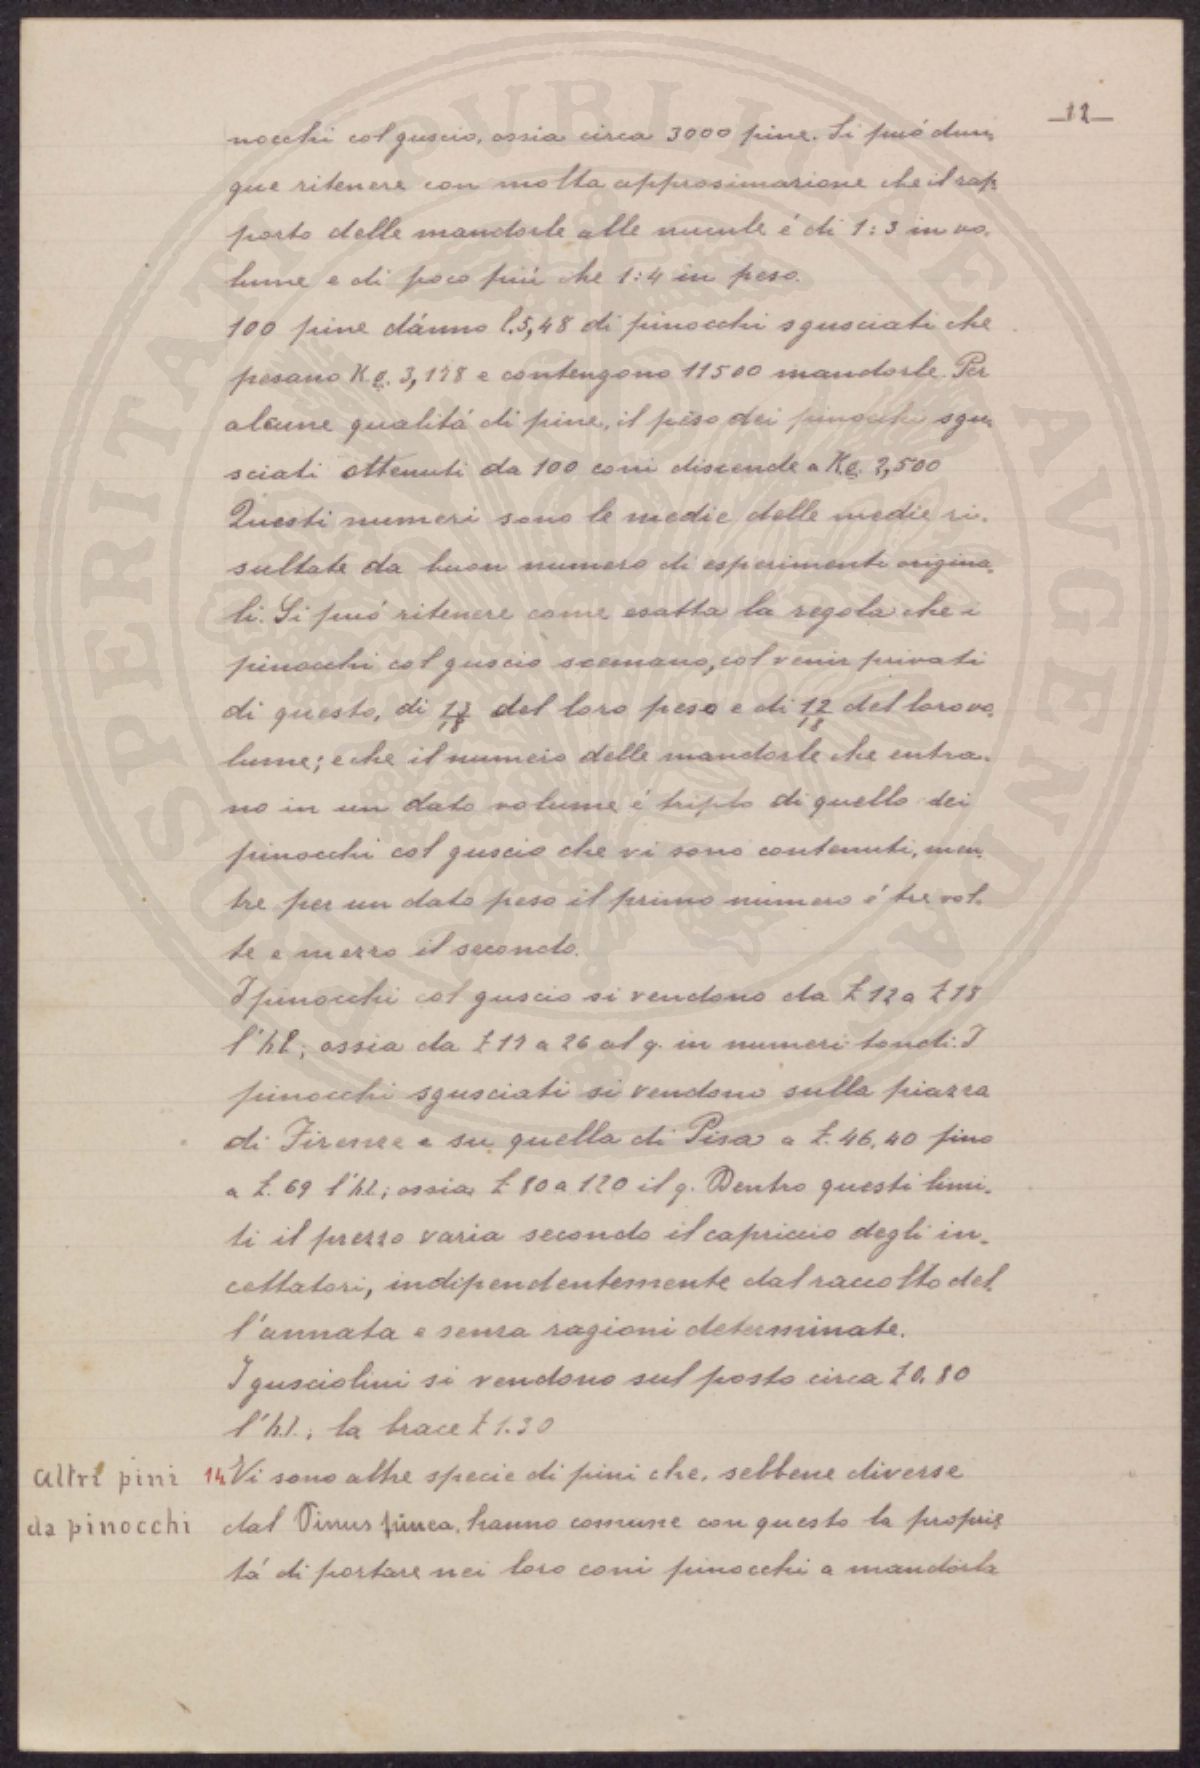 12
nocchi col guscio, ossia circa 3000 pine. Si può dun-
que ritenere con molta approssimazione che il rap-
porto delle mandorle alle nucule é di 1:3 in vo-
lume e di poco piú che 1:4 in peso.
100 pine dánno l. 5,48 di pinocchi sgusciati che
pesano Kg. 3,178 e contengono 11500 mandorle. Per
alcune qualitá di pine, il peso dei pinocchi sgu-
sciati ottenuti da 100 coni discende a Kg. 2,500
Questi numeri sono le medie delle medie ri-
sultate da buon numero di esperimenti origina-
li. Si puó ritenere come esatta la regola che i
pinocchi col guscio scemano, col venir privati
di questo, di 13/18 del loro peso e di 12/18 del loro vo-
lume; e che il numero delle mandorle che entra-
no in un dato volume é triplo di quello dei
pinocchi col guscio che vi sono contenuti, men-
tre per un dato peso il primo numero é tre vol-
te e mezzo il secondo.
I pinocchi col guscio si vendono da £ 12 a £ 18
l'hl; ossia da £ 19 a 26 al q. in numeri tondi. I
pinocchi sgusciati si vendono sulla piazza
di Firenze e su quella di Pisa a £. 46,40 fino
a £. 69 l'hl; ossia £ 80 a 120 il q. Dentro questi limi-
ti il prezzo varia secondo il capriccio degli in-
cettatori, indipendentemente dal raccolto del-
l'annata e senza ragioni determinate.
I gusciolini si vendono sul posto circa £ 0,80
l'hl.; la brace £ 1.30
altri pini 14. Vi sono altre specie di pini che, sebbene diverse
da pinocchi dal Pinus pinea, hanno comune con questo la proprie-
tá di portare nei loro coni pinocchi a mandorla
PROSPERITATI PUBLICAE AUGENDAE